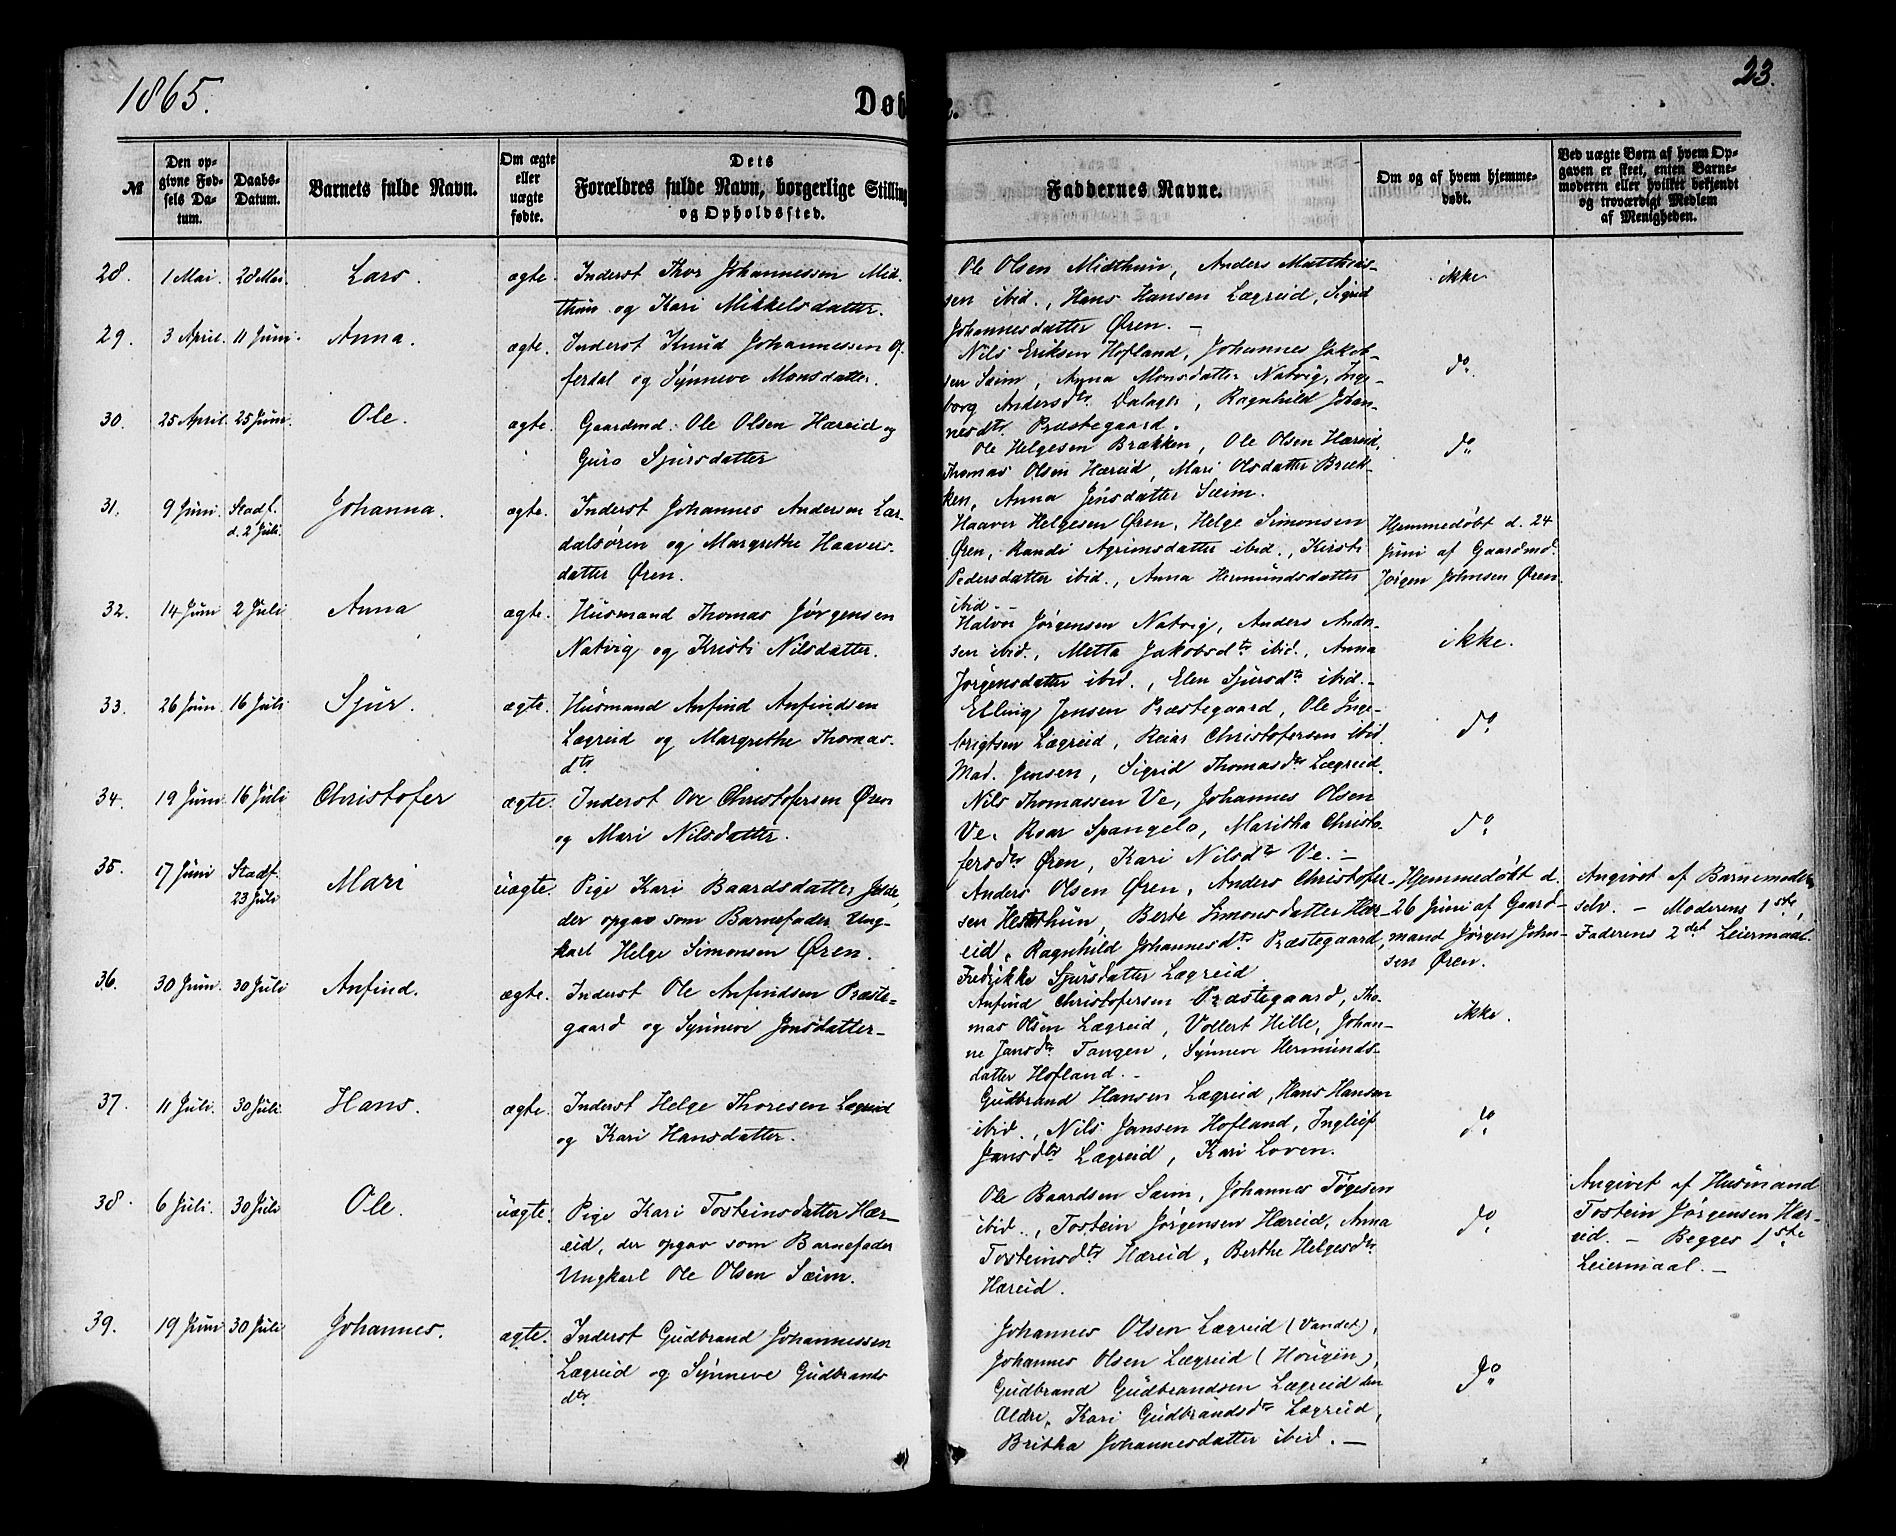 1865.
Døbte.
23.
№
Den opgivne Fødsels Datum.
Daabs-Datum.
Barnets fulde Navn.
Om ægte eller uægte fødte.
Dets Forældres fulde Navn, borgerlige Stilling og Opholdssted.
Faddernes Navne.
Om og af hvem hjemmedøbt.
Ved uægte Børn af hvem Opgaven er skeet, enten Barnemoderen eller hvilket bekjendt og troværdigt Medlem af Menigheden.
28. 1 Mai. 28 Mai. Lars. ægte.
Inderst Thor Johannessen Mid-
thun og Kari Mikkelsdatter.
Ole Olsen Midthun, Anders Matthias-
sen ibid., Hans Hansen Lægreid, Sigrid
Johannesdatter Øren. —
ikke
29. 3 April. 11 Juni. Anna. ægte.
Inderst Knud Johannessen Of-
ferdal og Synneve Monsdatter.
Nils Eriksen Hofland, Johannes Jakob-
sen Sæim, Anna Monsdatter Natvig, Inge-
borg Andersdtr. Dalager, Ragnhild Johan-
nesdtr. Præstegaard.
do.
30. 25 April. 25 Juni. Ole. ægte.
Gaardmd. Ole Olsen Hæreid og
Guro Sjursdatter
Ole Helgesen Brækken, Ole Olsen Hæreid,
Thomas Olsen Hæreid, Mari Olsdatter Bræk-
ken, Anna Jensdatter Sæim.
do.
31. 9 Juni. Stadf. d. 2 Juli. Johanna. ægte.
Inderst Johannes Andersen Lær-
dalsøren og Margrethe Haavers-
datter Øren.
Haaver Helgesen Øren, Helge Simonsen
Øren, Randi Agrimsdatter ibid., Kirsti
Pedersdatter ibid., Anna Hermundsdatter
ibid. —
Hjemmedøbt d. 24
Juni af Gaardmd.
Jørgen Johnsen Øren.
32. 14 Juni 2 Juli Anna ægte.
Husmand Thomas Jørgensen
Natvig og Kristi Nilsdatter.
Halvor Jørgensen Natvig, Anders Ander-
sen ibid., Metta Jakobsdtr ibid., Anna
Jørgensdatter ibid., Elen Sjursdtr ibid. —
ikke.
33. 26 Juni 16 Juli Sjur. ægte.
Husmand Anfind Anfindsen
Lægreid og Margrethe Thomas-
dtr.
Elling Jensen Præstegaard, Ole Inge-
brigtsen Lægreid, Reiar Christofersen ibid.
Mad. Jensen, Sigrid Thomasdtr Lægreid.
do.
34. 19 Juni 16 Juli Christofer ægte.
Inderst Ove Christofersen Øren
og Mari Nilsdatter.
Nils Thomassen Ve, Johannes Olsen
Ve, Roar Spangelo, Maritha Christo-
fersdtr Øren, Kari Nilsdtr Ve. —
do.
35. 17 Juni Stadf. 23 Juli Mari uægte.
Pige Kari Baardsdatter Jelde,
der opgav som Barnefader Ung-
karl Helge Simonsen Øren.
Anders Olsen Øren, Anders Christofer-
sen Hestethun, Berte Simonsdatter Hær-
eid, Ragnhild Johannesdtr Præstegaard,
Fredrikke Sjursdatter Lægreid.
Hjemmedøbt d.
26 Juni af Gaard-
mand Jørgen John-
sen Øren.
Angivet af Barnemoderen
selv. — Moderens 1ste,
Faderens 2det Leiermaal.
36. 30 Juni. 30 Juli Anfind. ægte.
Inderst Ole Anfindsen Præste-
gaard og Synneve Jonsdatter —
Anfind Christofersen Præstegaard, Tho-
mas Olsen Lægreid, Vollert Hille, Johan-
ne Jansdtr Tangen, Synneve Hermunds-
datter Hofland. —
ikke.
37. 11 Juli. 30 Juli. Hans. ægte.
Inderst Helge Thoresen Lægreid
og Kari Hansdatter.
Gudbrand Hansen Lægreid, Hans Hansen
ibid., Nils Jansen Hofland, Ingleif
Jansdtr Lægreid, Kari Loven.
do
38. 6 Juli. 30 Juli Ole. uægte.
Pige Kari Tosteinsdatter Hær-
eid, der opgav som Barnefader
Ungkarl Ole Olsen Sæim.
Ole Baardsen Sæim, Johannes Tøgesen
ibid., Tostein Jørgensen Hæreid, Anna
Tosteinsdtr Hæreid, Berthe Helgesdtr
Hæreid.
do.
Angivet af Husmand
Tostein Jørgensen Hær-
eid. — Begges 1ste
Leiermaal. —
39. 19 Juni 30 Juli Johannes. ægte.
Inderst Gudbrand Johannessen
Lægreid og Synneve Gudbrands
dtr.
Johannes Olsen Lægreid (Vandet),
Johannes Olsen Lægreid (Hougen),
Gudbrand Gudbrandsen Lægreid den
Ældre, Kari Gudbrandsdtr Lægreid,
Britha Johannesdatter ibid. —
do.